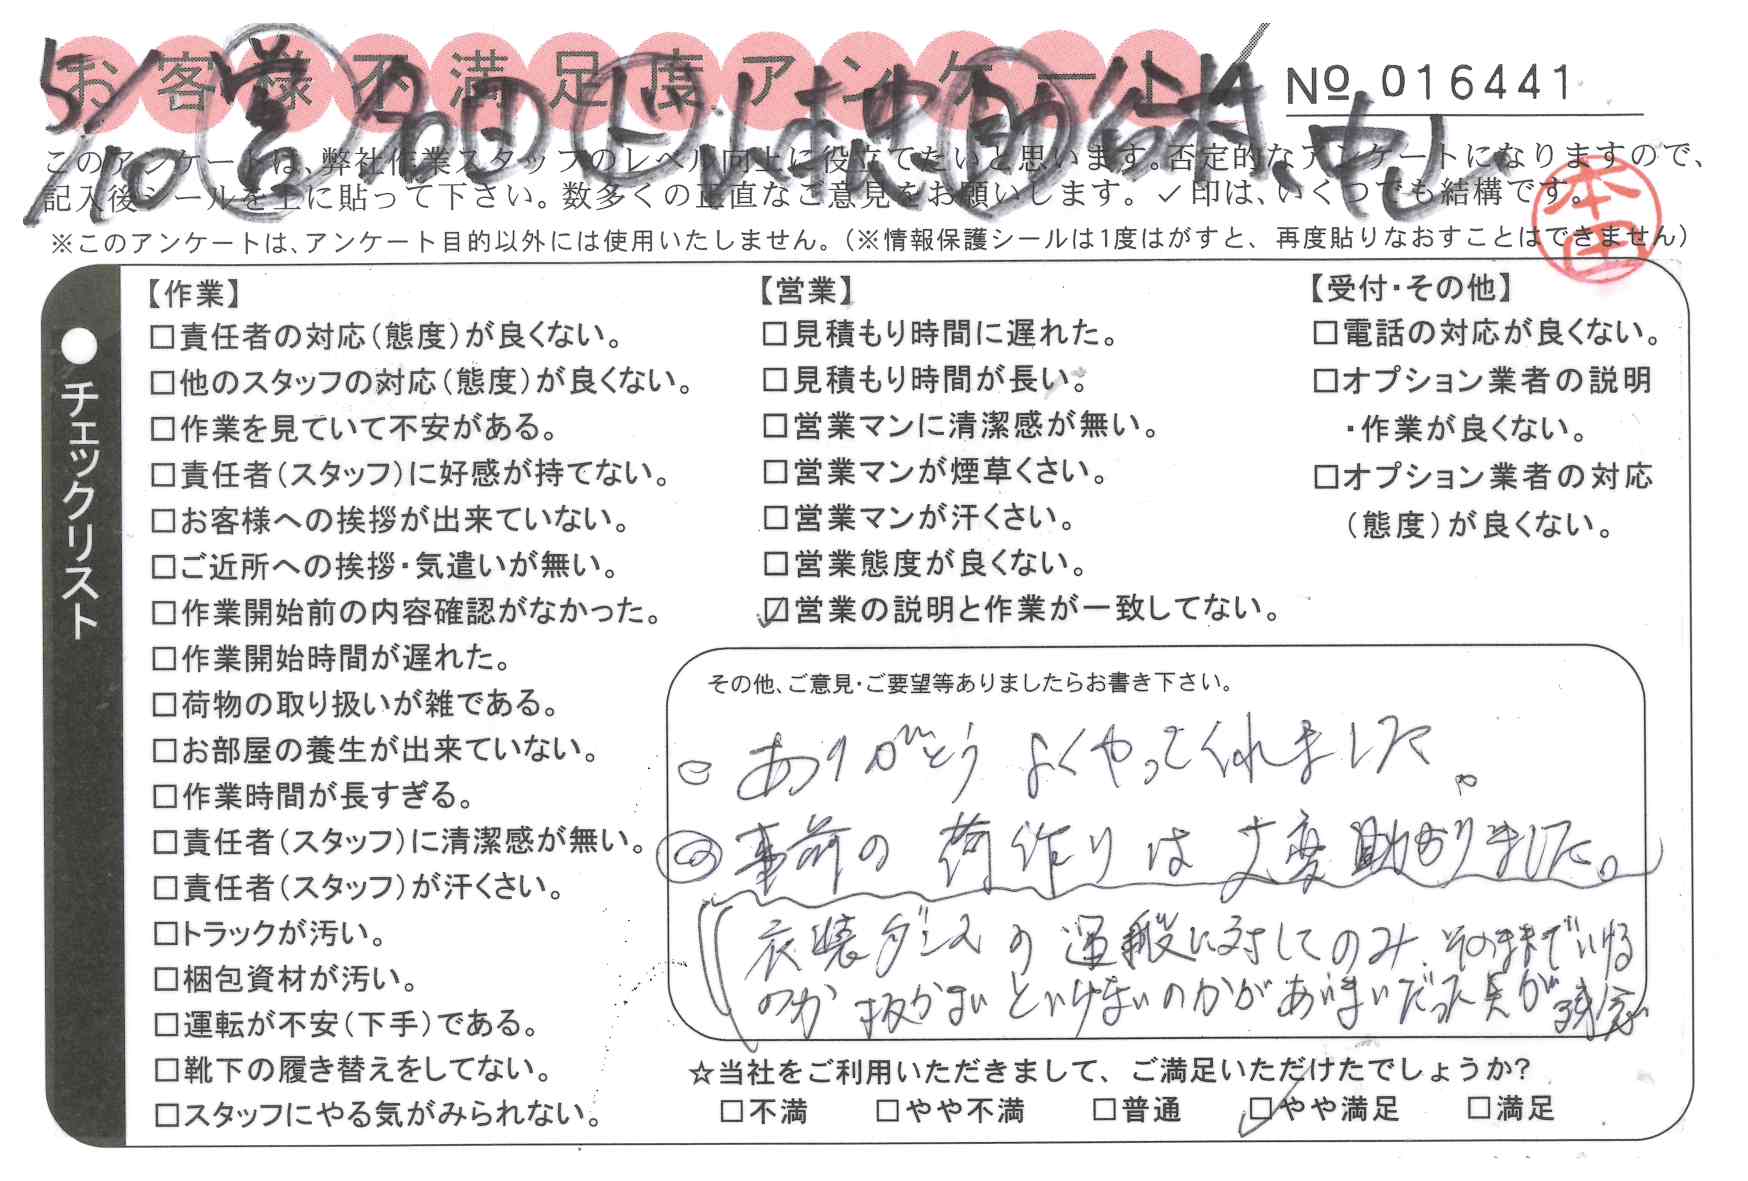 お客様不満足度アンケート
№ 016441
5/10 営
このアンケートは、弊社作業スタッフのレベル向上に役立てたいと思います。否定的なアンケートになりますので、
記入後シールを上に貼って下さい。数多くの正直なご意見をお願いします。✓印は、いくつでも結構です。
※このアンケートは、アンケート目的以外には使用いたしません。(※情報保護シールは1度はがすと、再度貼りなおすことはできません)
本田
●チェックリスト
【作業】
□責任者の対応(態度)が良くない。
□他のスタッフの対応(態度)が良くない。
□作業を見ていて不安がある。
□責任者(スタッフ)に好感が持てない。
□お客様への挨拶が出来ていない。
□ご近所への挨拶・気遣いが無い。
□作業開始前の内容確認がなかった。
□作業開始時間が遅れた。
□荷物の取り扱いが雑である。
□お部屋の養生が出来ていない。
□作業時間が長すぎる。
□責任者(スタッフ)に清潔感が無い。
□責任者(スタッフ)が汗くさい。
□トラックが汚い。
□梱包資材が汚い。
□運転が不安(下手)である。
□靴下の履き替えをしてない。
□スタッフにやる気がみられない。
【営業】
□見積もり時間に遅れた。
□見積もり時間が長い。
□営業マンに清潔感が無い。
□営業マンが煙草くさい。
□営業マンが汗くさい。
□営業態度が良くない。
☑営業の説明と作業が一致してない。
【受付・その他】
□電話の対応が良くない。
□オプション業者の説明
・作業が良くない。
□オプション業者の対応
(態度)が良くない。
その他、ご意見・ご要望等ありましたらお書き下さい。
ありがとう よくやってくれました。
事前の荷作りは大変助かりました。
衣装ダンスの運搬に対してのみ、そのままでいける
のか抜かないといけないのかがあいまいだった点が残念
☆当社をご利用いただきまして、ご満足いただけたでしょうか?
□不満 □やや不満 □普通 ☑やや満足 □満足